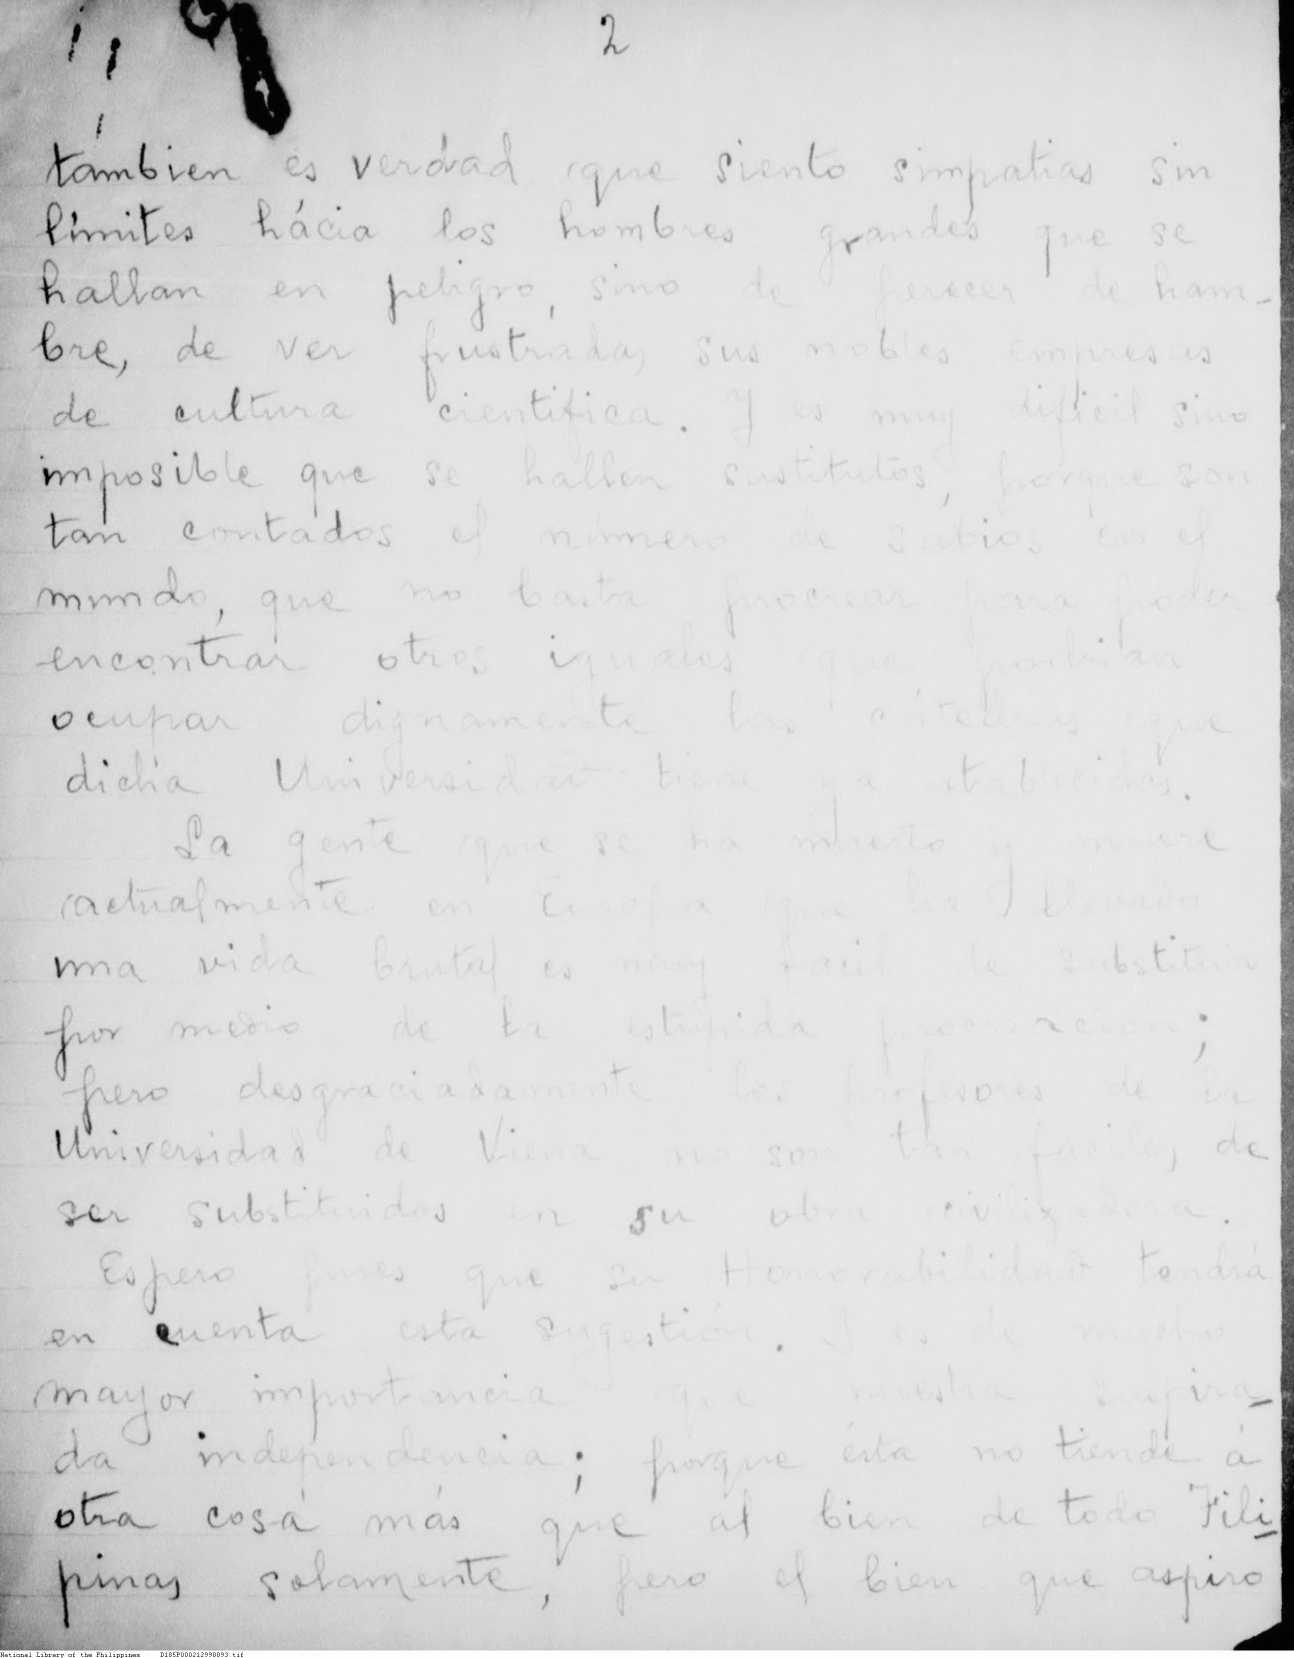 2
tambien es verdad que siento simpatias sin
límites hácia los hombres grandes que se
hallan en peligro, sino de perecer de ham-
bre, de ver frustradas sus nobles empresas
de cultura cientifica. Y es muy dificil sino
imposible que se hallen sustitutos, porque son
tan contados el número de sabios en el
mundo, que no basta procrear para poder
encontrar otros iguales que podrian
ocupar dignamente las cátedras que
dicha Universidad tiene ya establecidas.
La gente que se ha muerto y muere
actualmente en Europa que ha llevado
una vida brutal es muy facil de substituir
por medio de la estúpida procreacion;
pero desgraciadamente los profesores de la
Universidad de Viena no son tan faciles de
ser substituidos en su obra civilizadora.
Espero pues que su Honorabilidad tendrá
en cuenta esta sugestión. Y es de mucho
mayor importancia que nuestra suspira-
da independencia; porque ésta no tiende á
otra cosa más que al bien de todo Fili-
pinas solamente, pero el bien que aspiro
National Library of the Philippines D185P000212998093.tif